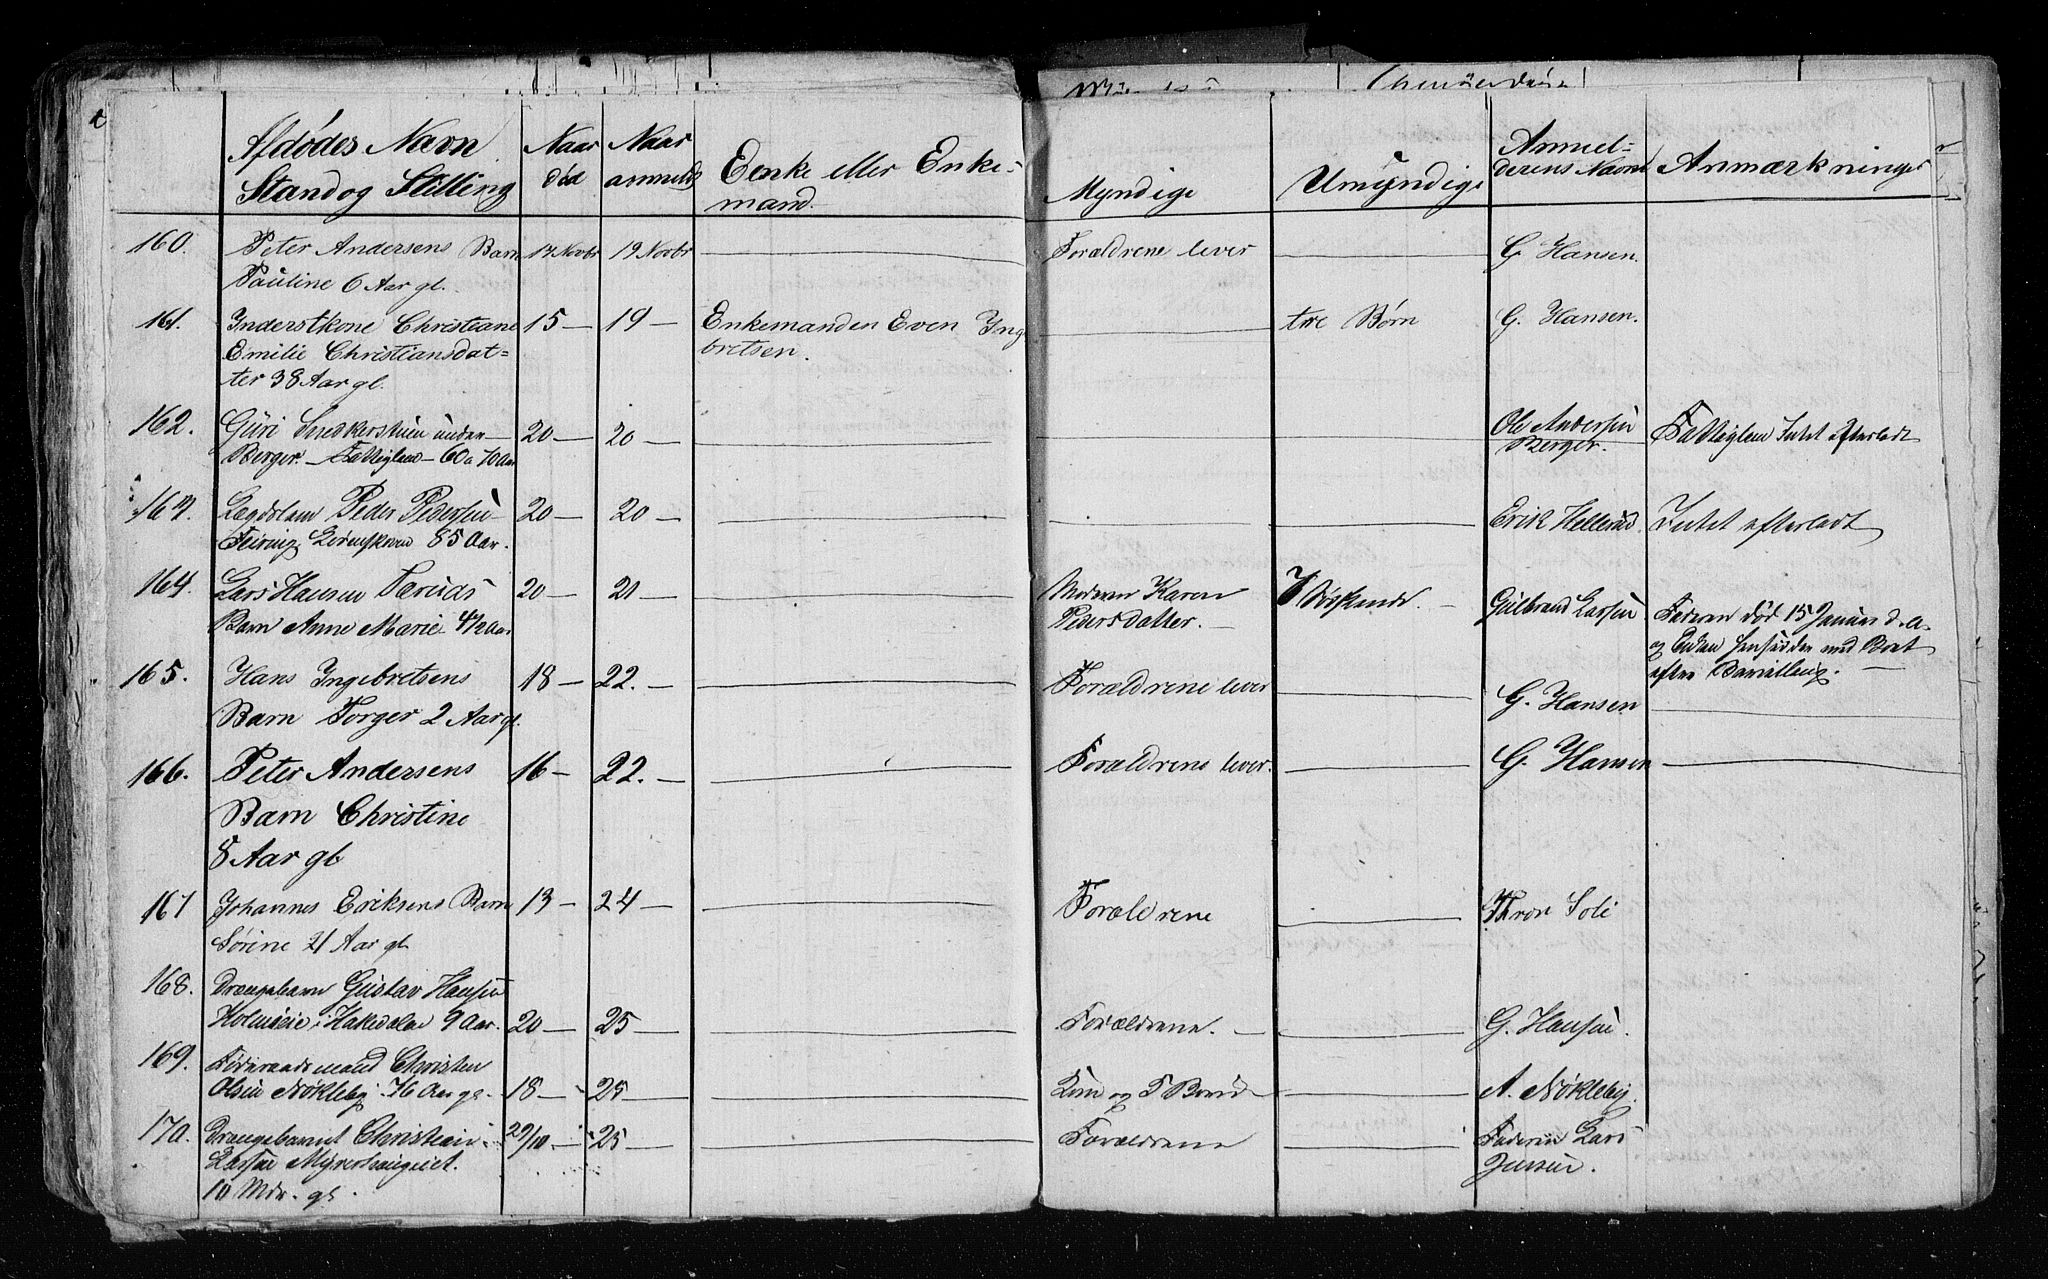 Afdødes Navn Stand og Stilling | Naar død | Naar anmeldt | Enke eller Enkemand. | Myndige | Umyndige | Anmelderens Navn | Anmærkninger
160. Peter Andersens Barn | 17 Novbr | 19 Novbr | Forældrene lever | G. Hansen.
Pauline 6 Aar gl.
161. Inderstkone Christiane | 15 — | 19 — | Enkemanden Even Inge | tre Børn | G. Hansen.
Emilie Christiansdat= | bretsen.
ter 38 Aar gl.
162. Guri Snekkerstuen under | 20 — | 20 — | Ole Andersen | Fattiglem Intet efterladt
Berger. — Fattiglem — 60 a 70 Aar | Berger.
163. Lægdslem Peder Pedersen | 20 — | 20 — | Erik Hellerud | Intet efterladt
Feiring, 85 Aar.
164. Lars Hansen | 20 — | 21 — | Moderen Karen | 7 Sødskende. — | Gulbrand Larsen | Faderen død 15 Januar d. A.
Barn Anne Marie 4½ Aar | Pedersdatter. — | og Enken hensidder med Boet
165. Hans Ingebretsens | 18 — | 22. — | Forældrene lever | efter Bevilling. —
Barn Torger 2 Aar gl. | G. Hansen
166. Peter Andersens | 16 — | 22. — | Forældrene lever. | G. Hansen
Barn Christine
8 Aar gl
167 Johannes Eriksens Barn | 13 — | 24 — | Forældrene | Thron Soli
Sørine 21 Aar gl.
168. Drengebarn Gustav Hansen
i Hakedalen 9 Aar. | 20 — | 25 — | Forældrene. — | G. Hansen.
169. Føderaadsmand Christen
Olsen Nøkleby 76 Aar gl. | 18 — | 25 — | Kone og 5 Børn | A. Nøkleby.
170. Drengebarnet Christian | 29/10 — | 25 — | Forældrene | Faderen Lars
Larsen | Jensen.
10 Mdr. gl.